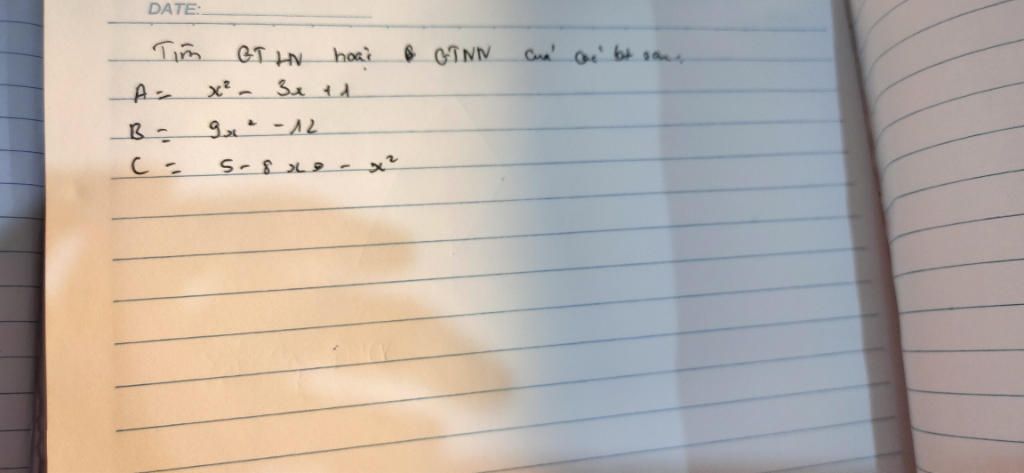 DATE:
Tìm GTLN hoặc GTNN của các bt sau.
A = x² - 3x + 1
B = 9x² - 12
C = 5 - 8x - x²